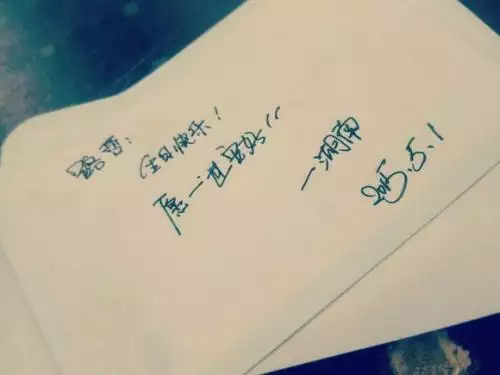 路哲:
生日快乐!
愿一世安好
—湖南
2015.5.1